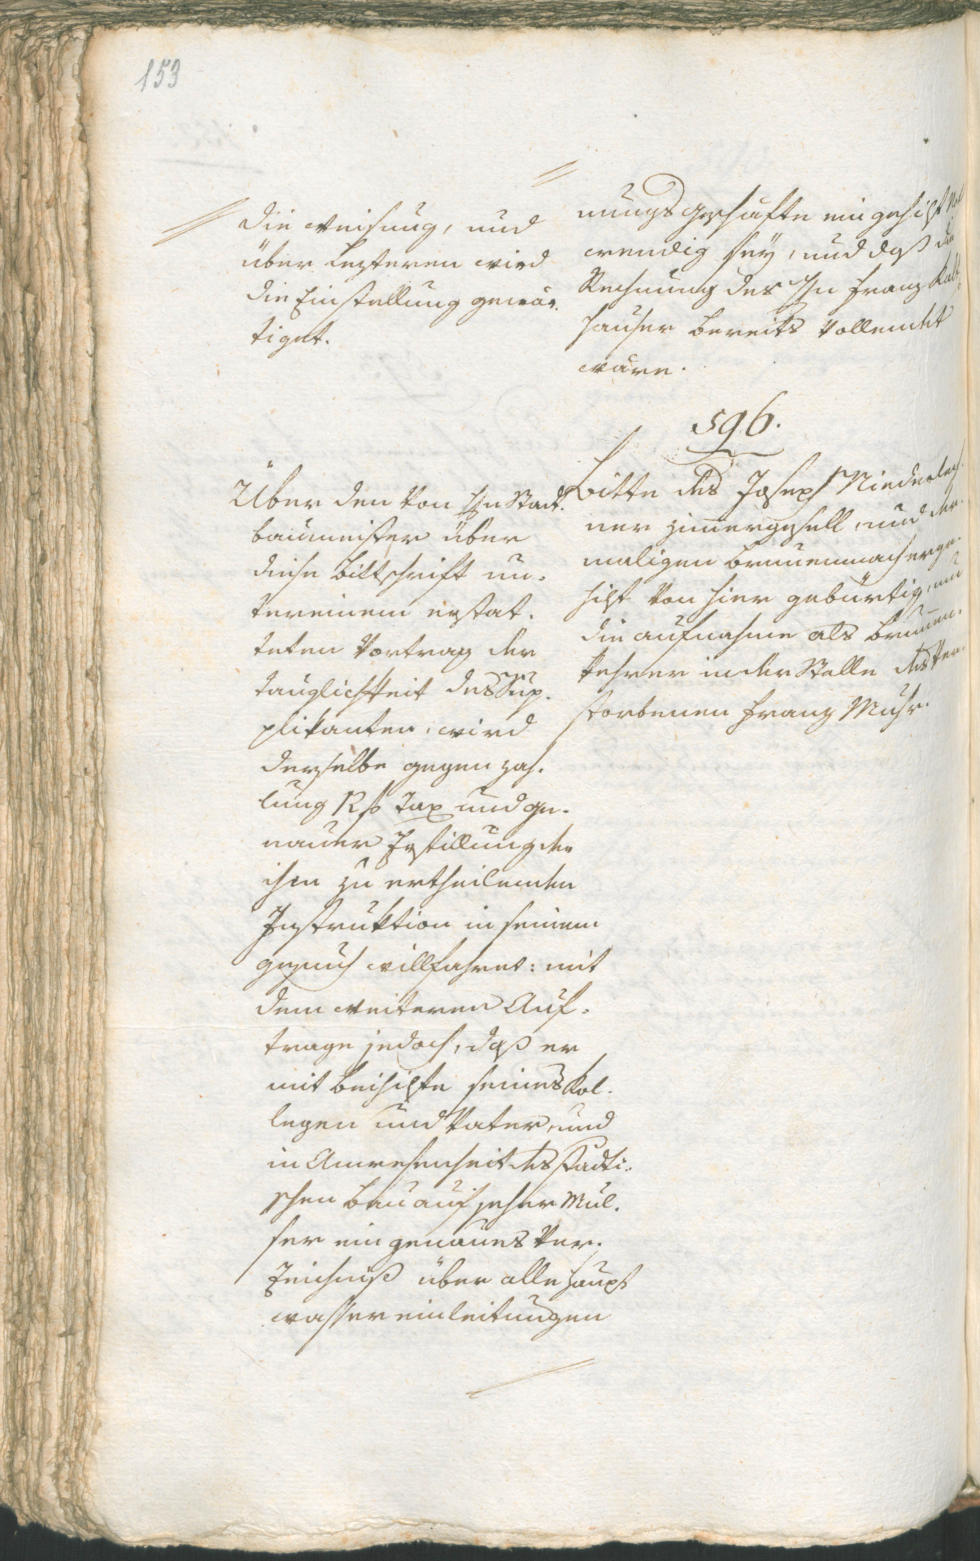 153
die Weisung, und
über lezteren wird
die Einstellung gewär¬
tiget.
nungsgeschäfte ein gesicht
wendig sey, und daß die
Rechnung des Hn Franz
hauser bereits vollendet
wäre.
596.
Bitte des Joseph Niederlech¬
ner Zimmergesell, und der¬
maligen Brunnenmachersge¬
hilf von hier gebürtig, um
die Aufnahme als Brunnen¬
kehrer in der Stelle des ver¬
storbenen Franz Muhr.
Über den von Hn Stadt¬
baumeister über
diese Bittschrift un¬
tereinem erstat¬
teten Vortrag der
Tauglichkeit des Sup¬
plikanten, wird
derselbe gegen Zah¬
lung Tax und ge¬
nauer Erfüllung der
ihm zu ertheilenden
Instruktion in seinem
Gesuch willfahret: mit
dem weiteren Auf¬
trage jedoch, daß er
mit Beihilfe seines Kol¬
legen und Vater, und
in Anwesenheit des städti¬
schen Bauaufseher Mul¬
ser ein genaues Ver¬
zeichniß über alle Haupt
wassereinleitungen